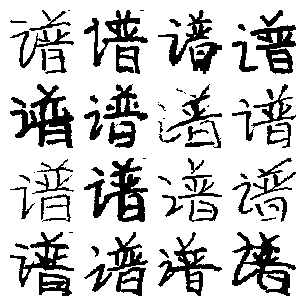 谱谱谱谱
谱谱谱谱
谱谱谱谱
谱谱谱谱